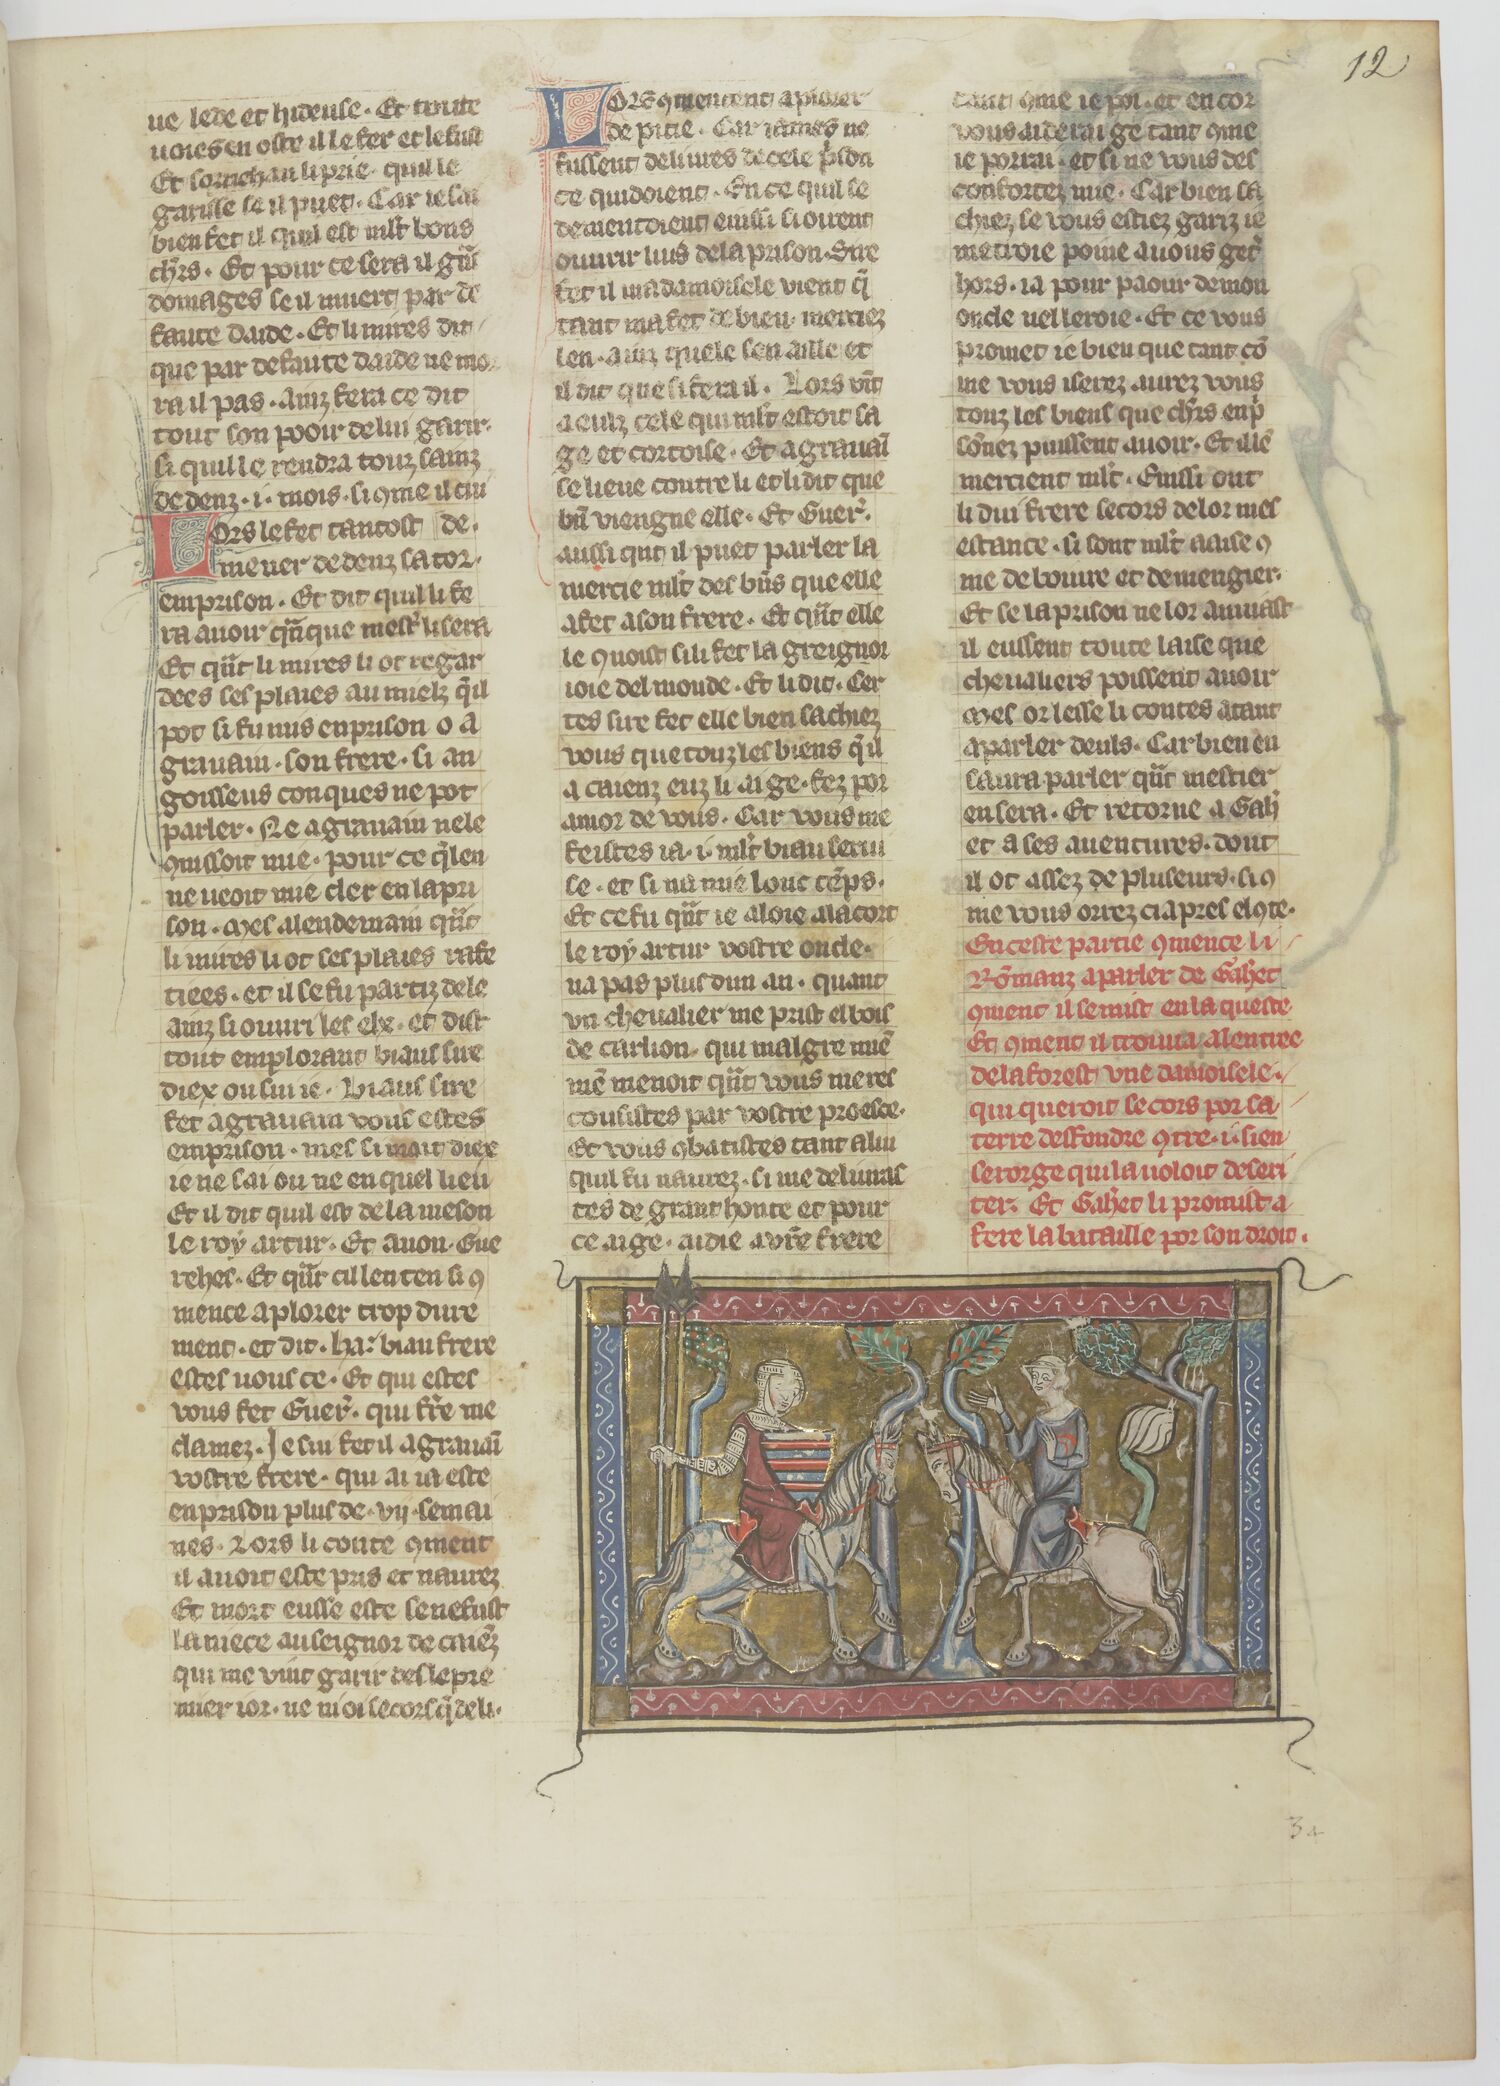 12
ue lede et hideuse. Et toute
uoies en oste il le fer et le fust
Et son chan li prie. quil le
garisse se il puet. Car ie sai
bien fet il quil est ml̃t bons
ch̃rs. Et pour ce sera il grã
domages se il muert par de
faute daide. Et li mires dit
que par defaute daide ne mo
ra il pas. ainz fera ce dit
tout son pooir de lui garir.
si quil le rendra touz sainz
dedenz .i. mois. si ꝯme il cui
Lors le fet tantost de.
mener dedenz sa tor.
emprison. Et dit quil li fe
ra auoir qñque mest̾ li sera
Et qñt li mires li ot regar
dees ses plaies au mielz q̃il
pot si fu mis enprison o a
grauain. son frere. si an
goisseus conques ne pot
parler. Ne agrauain ne le
ꝯnissoit mie. pour ce q̃len
ne ueoit mie cler en la pri
son. Mes alendemain qñt
li mires li ot ses plaies rafe
tiees. et il se fu partiz dele
ainz si ouuri les elx. et dist
tout emplorant biaus sire
diex ou sui ie. Biaus sire
fet agrauain vous estes
emprison. mes si mait diex
ie ne sai ou ne en quel lieu
Et il dit quil est de la meson
le roy artur. Et a non. Gue
rehes. Et qñt cil lenten si ꝯ
mence a plorer trop dure
ment. et dit. ha: biau frere
estes uous ce. Et qui estes
vous fet Guer̾. qui fr̃e me
clamez. Je sui fet il agrauaĩ
vostre frere. qui ai ia este
en prison plus de .vij. semai
nes. Lors li conte ꝯment
il auoit este pris et naurez
Et mort eusse este se ne fust
la niece au seignor de caiẽz
qui me vint garir des le pre
mier ior. ne nioi secors q̃ deli.
Lors ꝯmencent a plorer
de pitie. Car iames ne
fussent deliures de cele p̃son
ce quidoient. En ce quil se
dementoient einssi si oirent
ouurir luis de la prison. Sire
fet il ma damoisele vient q̃
tant ma fet de bien. merciez
len. ainz quele sen aille et
il dit que si fera il. Lors vĩt
a eulz cele qui ml̃t estoit sa
ge et cortoise. Et agrauaĩ
se lieue contre li et li dit que
bñ viengne elle. Et Guer̾.
aussi qnt il puet parler la
mercie ml̃t des bñs que elle
a fet a son frere. Et qñt elle
le ꝯnoist si li fet la greignor
ioie del monde. Et li dit. Cer
tes sire fet elle bien sachiez
vous que touz les biens q̃il
a caienz euz li ai ge. fez por
amor de vous. Car vous me
feistes ia .i. ml̃t biau serui
se. et si na mie lonc tẽps.
Et ce fu qñt ie aloie a la cort
le roy artur vostre oncle.
na pas plus dun an. quant
vn cheualier me prist el bois
de carlion. qui malgre miẽ
mẽ menoit qñt vous meres
cousistes par vostre proesce.
Et vous ꝯbatistes tant a lui
quil fu naurez. si me deliuras
tes de grant honte et pour
ce ai ge. aidie a vr̃e frere
tant ꝯme ie poi. et encor
vous aiderai ge tant ꝯme
ie porrai. et si ne vous des
confortez mie. Car bien sa
chiez se vous estiez gariz ie
metroie poine a vous get̾
hors. ia pour paour de mon
oncle ne lleroie. Et ce vous
promet ie bien que tant cõ
me vous i serez aurez vous
touz les biens que ch̃rs enp̃
sõnez puissent auoir. Et il lẽ
mercient ml̃t. Einssi ont
li dui frere secors de lor mes
estance. si sont ml̃t a aise ꝯ
me de boiure et de mengier.
Et se la prison ne lor anuiast
il eussent toute laise que
cheualiers poissent auoir
Mes or lesse li contes atant
a parler deuls. Car bien en
saura parler qñt mestier
en sera. Et retorne a Gah̾
et a ses auentures. dont
il ot assez de pluseurs. si ꝯ
me vous orrez ci apres el ꝯte.
En ceste partie ꝯmence li
Rõmanz a parler de Gah̾et
ꝯment il se mist en la queste
Et ꝯment il trouua a lentree
de la forest vne damoisele.
qui queroit secors por sa
terre desfendre ꝯtre .i. sien
serorge qui la uoloit deseri
ter. Et Gah̾et li promist a
fere la bataille por son droit.
34